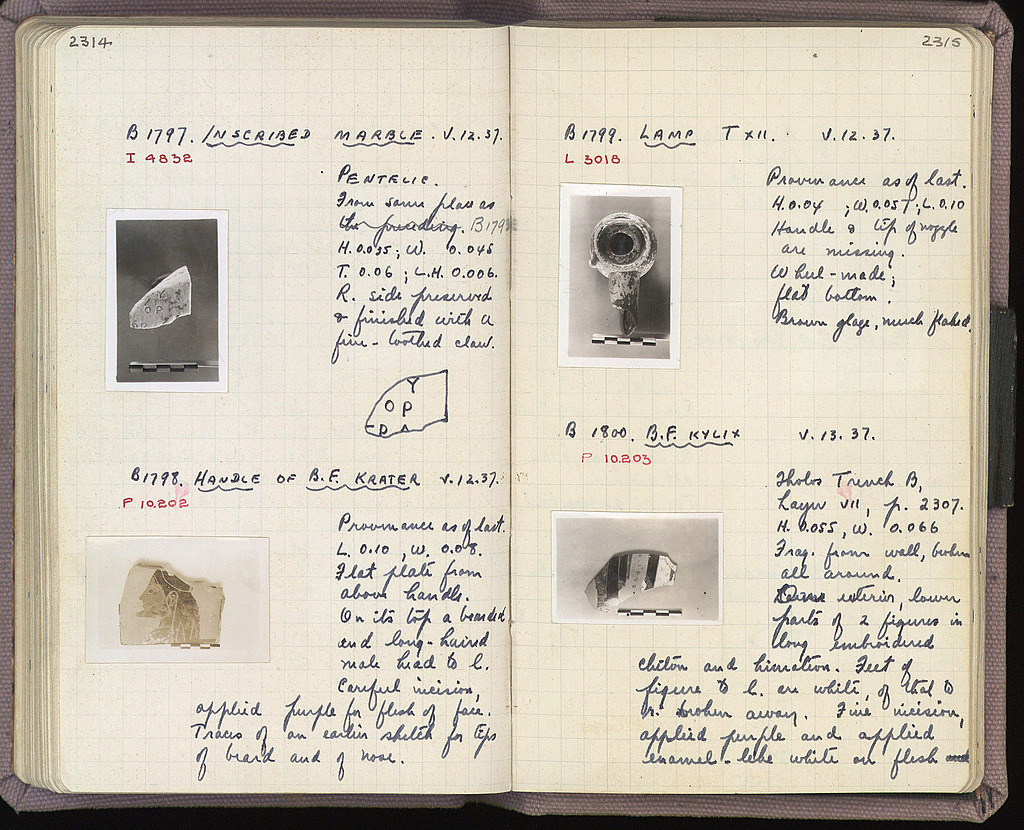 2314
B 1797. INSCRIBED MARBLE. V.12.37.
I 4832
PENTELIC.
From same place as
the preceding. B1793
H. 0.035; W. 0.045
T. 0.06 ; L.H. 0.006.
R. side preserved
& finished with a
fine-toothed claw.
Y
O P
P A
B1798. HANDLE OF B.F. KRATER V.12.37.
P 10.202
Provenance as of last.
L. 0.10, W. 0.08.
Flat plate from
above handle.
On its top a bearded
and long-haired
male head to l.
Careful incision,
applied purple for flesh of face.
Traces of an earlier sketch for tips
of beard and of nose.
2315
B 1799. LAMP T XII. V.12.37.
L 3018
Provenance as of last.
H. 0.04 ; W. 0.057; L. 0.10
Handle & tip of nozzle
are missing.
Wheel-made;
flat bottom.
Brown glaze, much flaked.
B 1800. B.F. KYLIX V.13.37.
P 10.203
Tholos Trench B,
Layer VII, p. 2307.
H. 0.055, W. 0.066
Frag. from wall, broken
all around.
exterior, lower
parts of 2 figures in
long embroidered
chiton and himation. Feet of
figure to l. are white, of that to
r. broken away. Fine incision,
applied purple and applied
enamel-like white on flesh